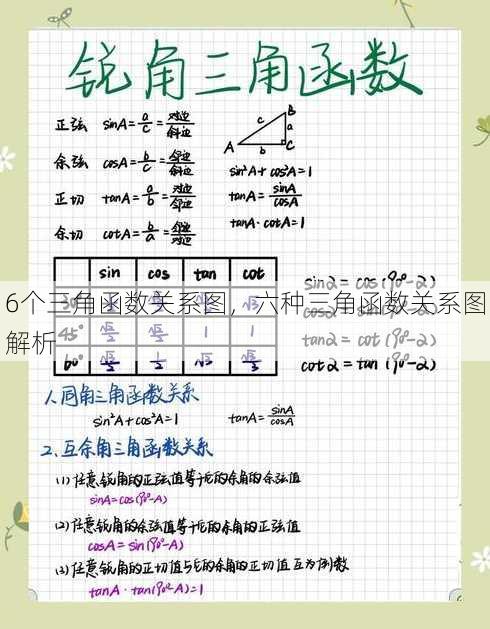 锐角三角函数
正弦 sinA=a/c=对边/斜边
余弦 cosA=b/c=邻边/斜边
正切 tanA=a/b=对边/邻边
余切 cotA=b/a=邻边/对边
B
c a
A b C
sin²A+cos²A=1
tanA=sinA/cosA
tanA·cotA=1
sin cos tan cot
45° √2/2 √2/2 1 1
60° √3/2 1/2 √3 √3/3
sinα=cos(90°-α)
tanα=cot(90°-α)
cotα=tan(90°-α)
6个三角函数关系图，六种三角函数关系图
解析
1.同角三角函数关系
sin²A+cos²A=1 tanA=sinA/cosA
2.互余角三角函数关系
(1)任意锐角的正弦值等于它的余角的余弦值
sinA=cos(90°-A)
(2)任意锐角的余弦值等于它的余角的正弦值
cosA=sin(90°-A)
(3)任意锐角的正切值与它的余角的正切值互为倒数
tanA·tan(90°-A)=1